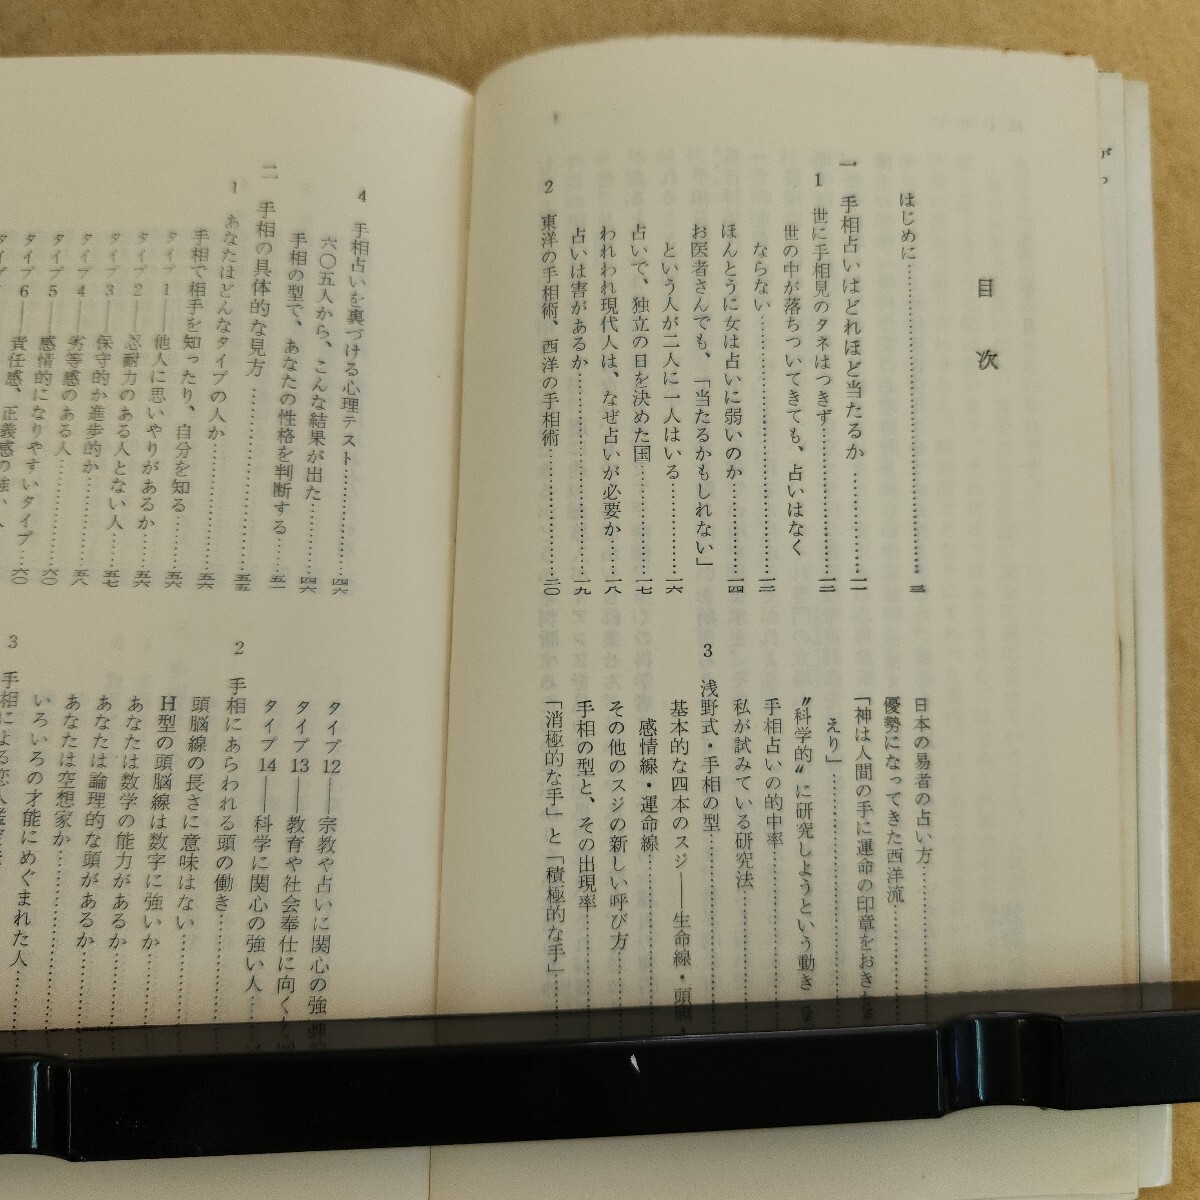 目次
はじめに……三
一 手相占いはどれほど当たるか……一一
1 世に手相見のタネはつきず……一二
世の中が落ちついてきても、占いはなく
ならない……一二
ほんとうに女は占いに弱いのか……一四
お医者さんでも、「当たるかもしれない」
という人が二人に一人はいる……一六
占いで、独立の日を決めた国……一七
われわれ現代人は、なぜ占いが必要か……一八
占いは害があるか……一九
2 東洋の手相術、西洋の手相術……二〇
日本の易者の占い方……
優勢になってきた西洋流……
「神は人間の手に運命の印章をおき
えり」……
〝科学的〟に研究しようという動き
手相占いの的中率……
私が試みている研究法……
3 浅野式・手相の型……
基本的な四本のスジ――生命線・頭
感情線・運命線……
その他のスジの新しい呼び方……
手相の型と、その出現率……
「消極的な手」と「積極的な手」……
4 手相占いを裏づける心理テスト……四六
六〇五人から、こんな結果が出た……四六
手相の型で、あなたの性格を判断する……五一
二 手相の具体的な見方……五五
1 あなたはどんなタイプの人か……五六
手相で相手を知ったり、自分を知る……五六
タイプ1――他人に思いやりがあるか……五六
タイプ2――忍耐力のある人とない人……五七
タイプ3――保守的か進歩的か……五八
タイプ4――劣等感のある人……
タイプ5――感情的になりやすいタイプ……六〇
タイプ6――責任感、正義感の強い人
タイプ12――宗教や占いに関心の強
タイプ13――教育や社会奉仕に向く
タイプ14――科学に関心の強い人……
2 手相にあらわれる頭の働き……
頭脳線の長さに意味はない……
H型の頭脳線は数字に強いか……
あなたは数学の能力があるか……
あなたは論理的な頭があるか……
あなたは空想家か……
いろいろの才能にめぐまれた人……
3 手相による恋人